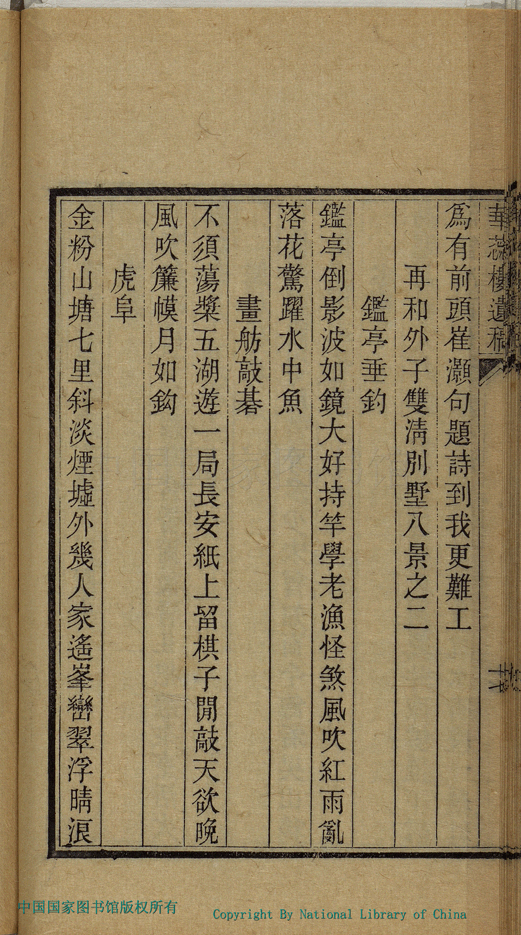 華蕊樓遺稿
爲有前頭崔灝句題詩到我更難工
再和外子雙淸別墅八景之二
鑑亭垂釣
鑑亭倒影波如鏡大好持竿學老漁怪煞風吹紅雨亂
落花驚躍水中魚
畫舫敲碁
不須蕩槳五湖遊一局長安紙上留棋子閒敲天欲晚
風吹簾幙月如鈎
虎阜
金粉山塘七里斜淡煙墟外幾人家遙峯巒翠浮晴浪
中国国家图书馆版权所有
Copyright By National Library of China